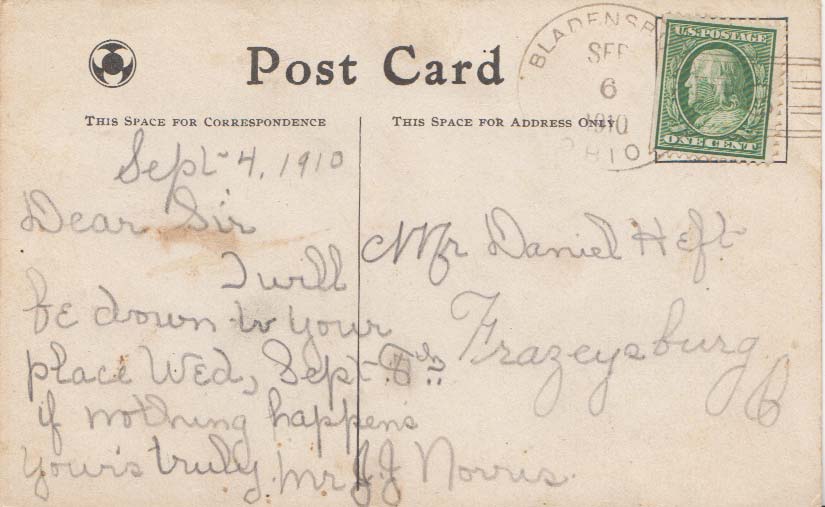 Post Card
THIS SPACE FOR CORRESPONDENCE
THIS SPACE FOR ADDRESS ONLY
BLADENSB
SEP
6
1910
OHIO
U.S. POSTAGE
ONE CENT
Sept 4, 1910
Dear Sir
I will
be down to your
place Wed, Sept
if nothing happens
Your's truly, Mr J.J Norris.
Mr Daniel Heft
Frazeysburg
O